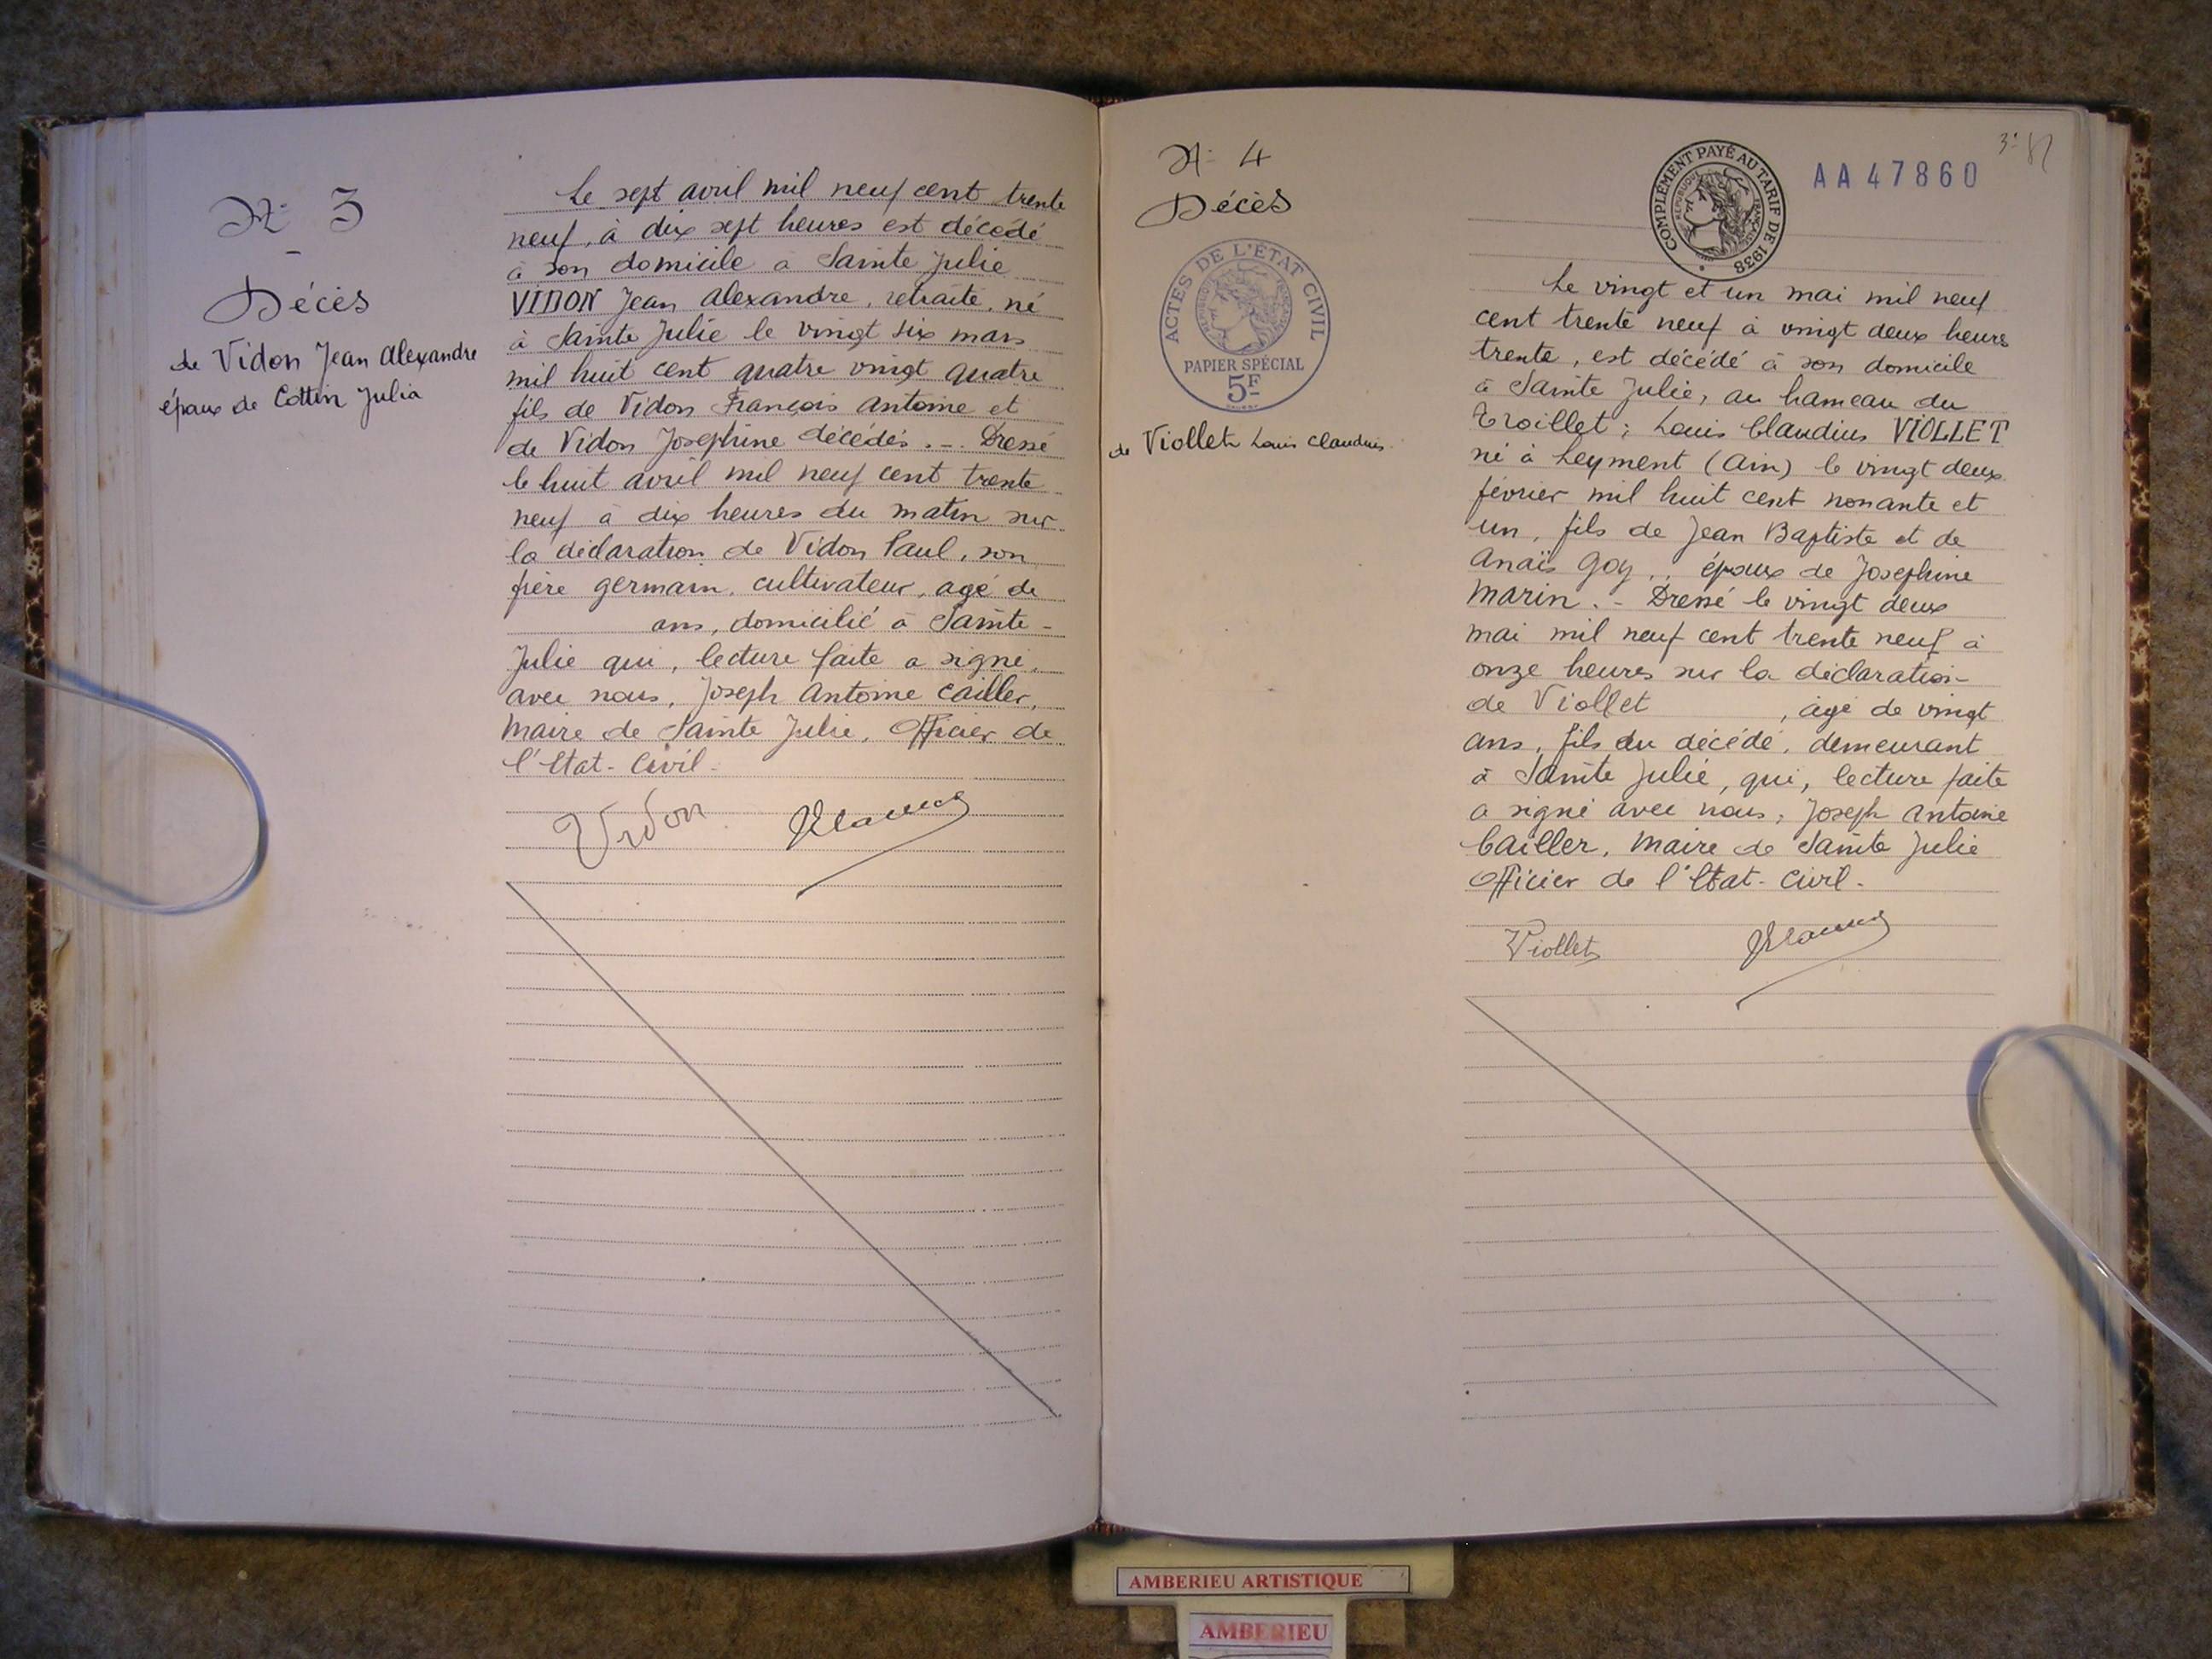 N° 3
Décès
de Vidon Jean Alexandre
époux de Cottin Julia
Le sept avril mil neuf cent trente
neuf, à dix sept heures est décédé
à son domicile à Sainte Julie
VIDON Jean Alexandre, retraité, né
à Sainte Julie le vingt six mars
mil huit cent quatre vingt quatre
fils de Vidon François Antoine et
de Vidon Josephine décédés. - Dressé
le huit avril mil neuf cent trente
neuf à dix heures du matin sur
la déclaration de Vidon Paul, son
frère germain, cultivateur, agé de
ans, domicilié à Sainte-
Julie qui, lecture faite a signé,
avec nous, Joseph Antoine Cailler,
Maire de Sainte Julie, Officier de
l'Etat-Civil.
Vidon
N° 4
Décès
ACTES DE L'ÉTAT CIVIL
RÉPUBLIQUE FRANÇAISE
PAPIER SPÉCIAL
5F
de Viollet Louis Claudius.
COMPLÉMENT PAYÉ AU TARIF DE 1938
RÉPUBLIQUE FRANÇAISE
AA47860
Le vingt et un mai mil neuf
cent trente neuf à vingt deux heures
trente, est décédé à son domicile
à Sainte Julie, au hameau du
Troillet; Louis Claudius VIOLLET
né à Leyment (Ain) le vingt deux
février mil huit cent nonante et
un, fils de Jean Baptiste et de
Anaïs Goy, époux de Josephine
Marin. - Dressé le vingt deux
mai mil neuf cent trente neuf à
onze heures sur la déclaration
de Viollet , agé de vingt
ans, fils du décédé, demeurant
à Sainte Julie, qui, lecture faite
a signé avec nous, Joseph Antoine
Cailler, Maire de Sainte Julie
Officier de l'Etat-Civil.
Viollet
AMBERIEU ARTISTIQUE
AMBERIEU